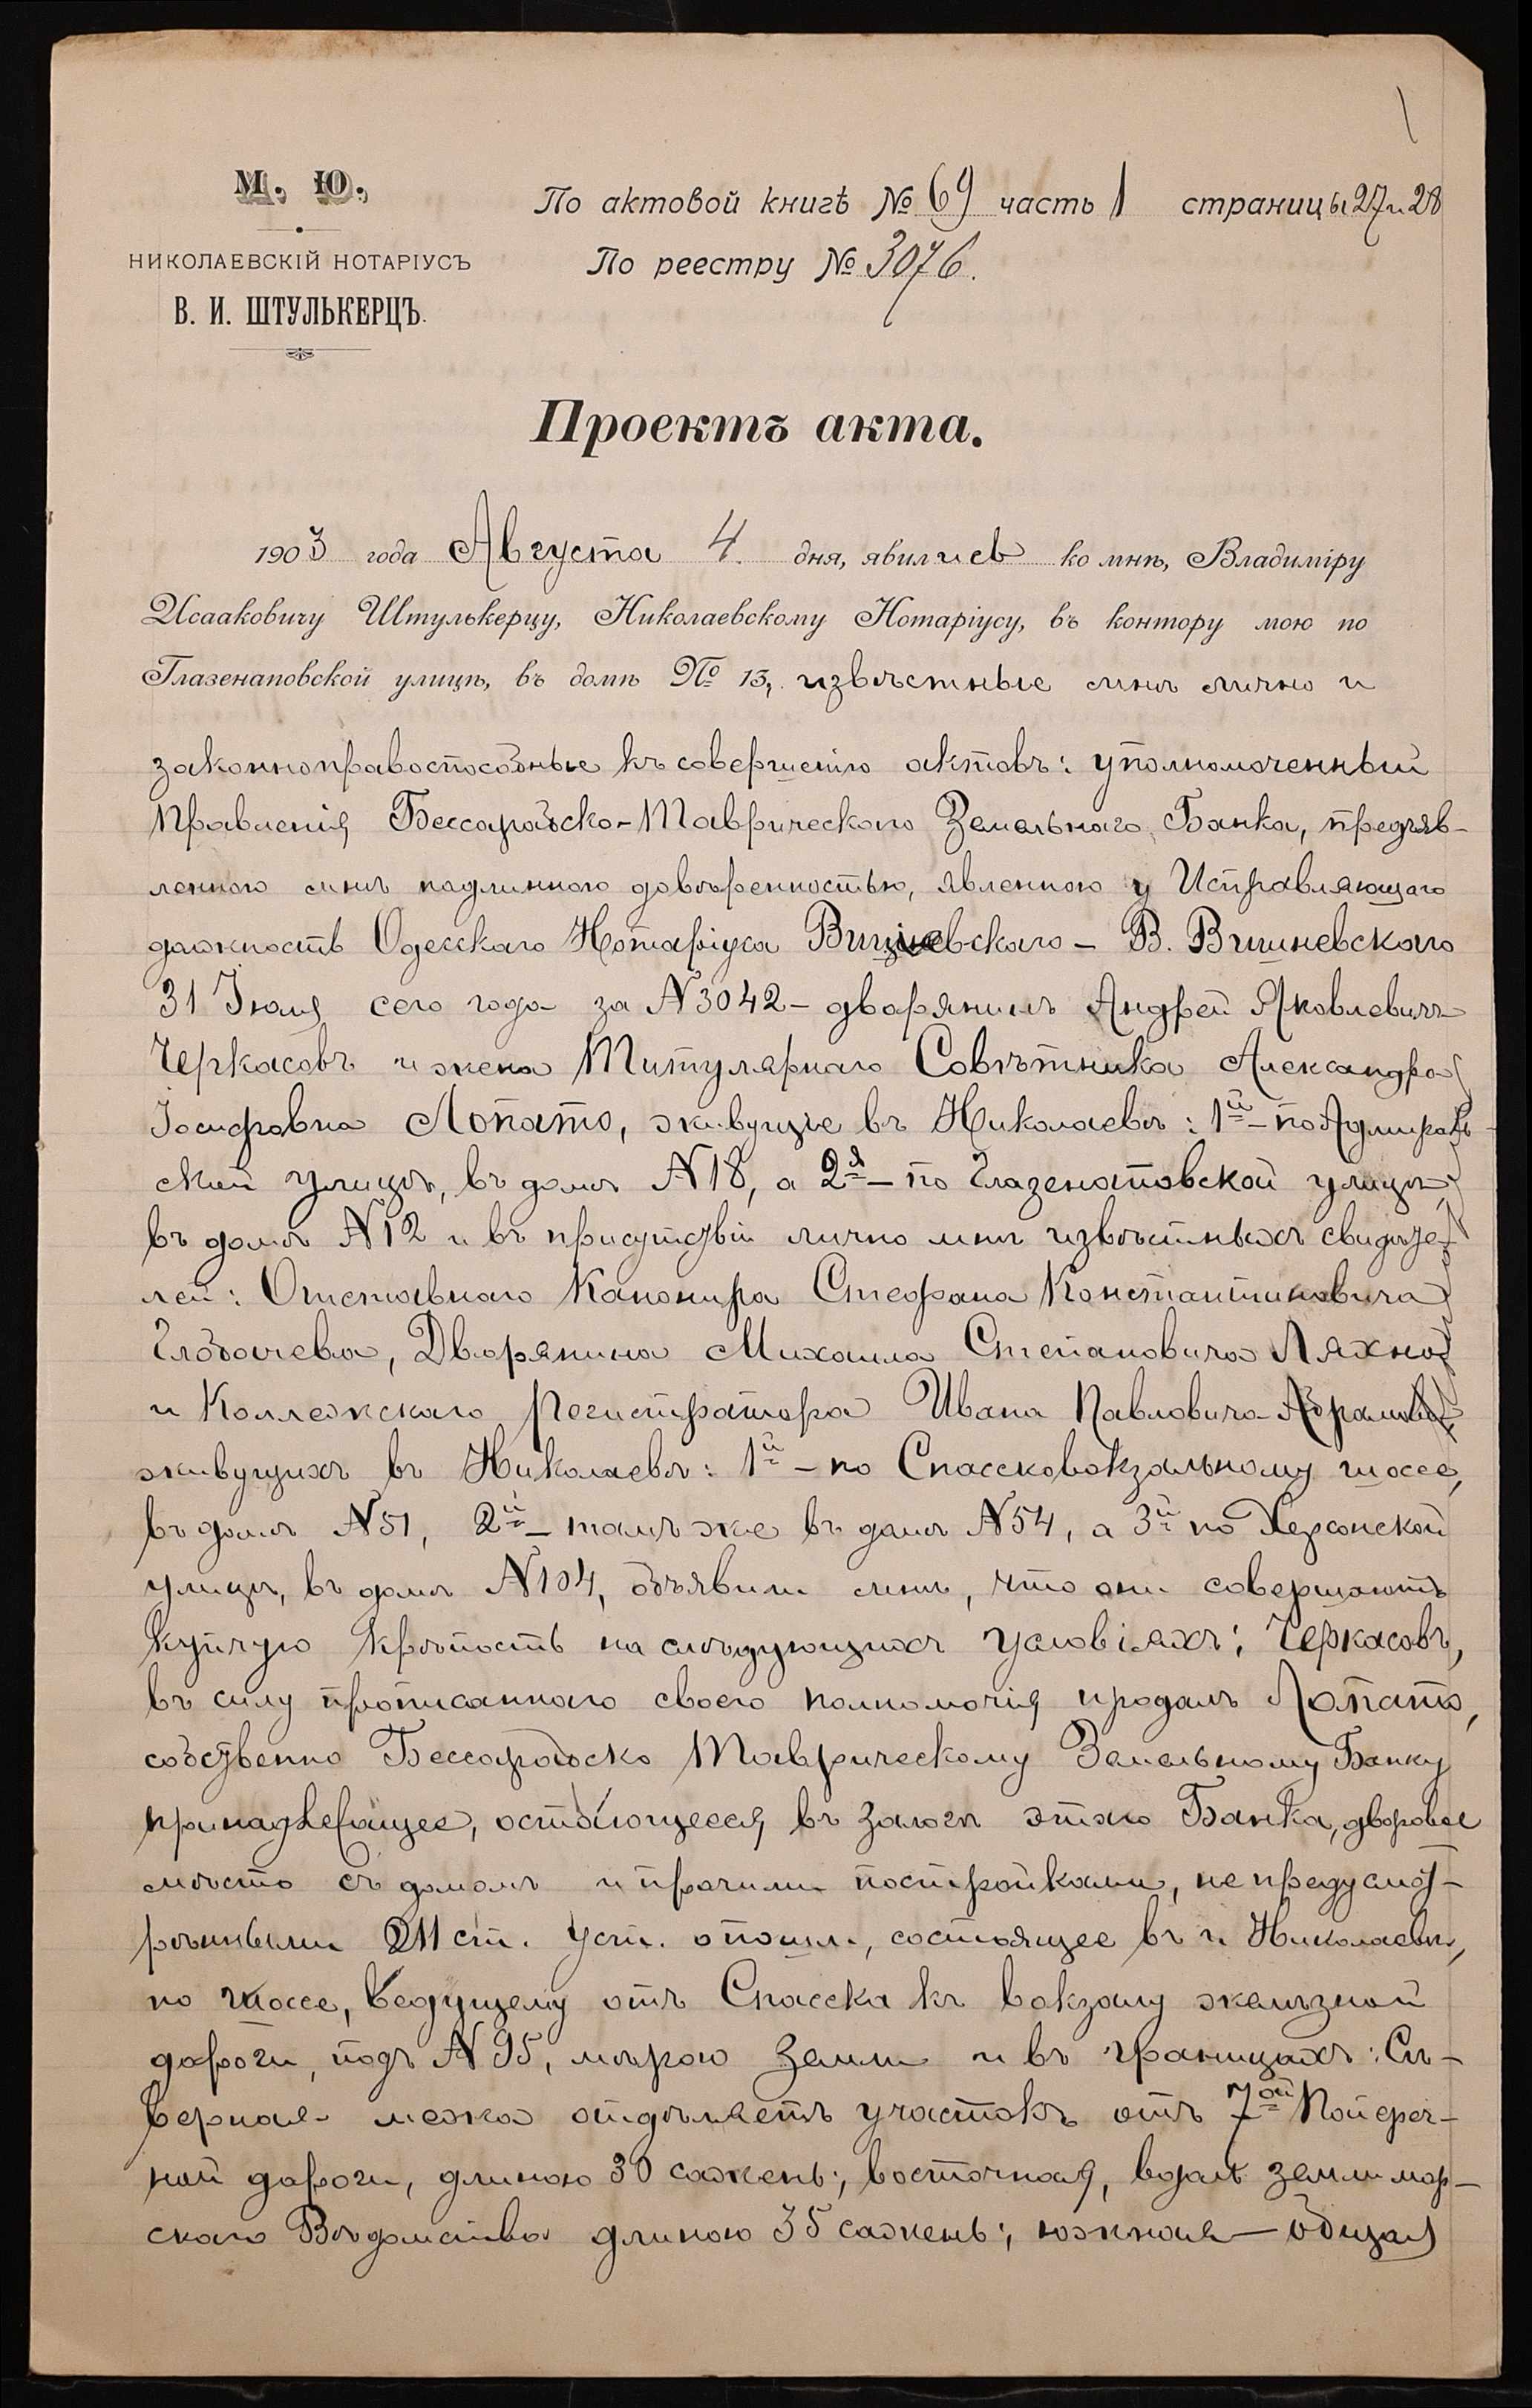 М. Ю.
НИКОЛАЕВСКІЙ НОТАРІУСЪ
В. И. ШТУЛЬКЕРЦЪ.
По актовой книгѣ № 69 часть 1 страницы 27 и 28
По реестру № 3076.
Проектъ акта.
1903 года Августа 4. дня, явились ко мнѣ, Владиміру
Исааковичу Штулькерцу, Николаевскому Нотаріусу, въ контору мою по
Глазенаповской улицѣ, въ домѣ № 13, извѣстные мнѣ лично и
законноправоспособные къ совершенію актовъ: уполномоченный
Правленія Бессарабско-Таврическаго Земельнаго Банка, предъяв-
ленною мнѣ подлинною довѣренностью, явленною у Исправляющаго
должность Одесскаго Нотаріуса Вишневскаго - В. Вишневскаго
31 Іюля сего года за N 3042 - дворянинъ Андрей Яковлевичъ
Черкасовъ и жена Титулярнаго Совѣтника Александра
Іосифовна Лопато, живущіе въ Николаевѣ: 1й - по Адмираль-
ской улицѣ, въ домѣ N 18, а 2я - по Глазенаповской улицѣ,
въ домѣ N 12 и въ присутствіи лично мнѣ извѣстныхъ свидѣте-
лей: Отставнаго Канонира Стефана Константиновича
Глобачева, Дворянина Михаила Степановича Ляхно
и Коллежскаго Регистратора Ивана Павловича
живущихъ въ Николаевѣ: 1й - по Спассковокзальному шоссе,
въ домѣ N 51, 2й - тамъ же въ домѣ N 54, а 3й по Херсонской
улицѣ, въ домѣ N 104, объявили мнѣ, что они совершаютъ
купчую крѣпость на слѣдующихъ условіяхъ: Черкасовъ,
въ силу прописаннаго своего полномочія продалъ Лопато,
собственно Бессарабско Таврическому Земельному Банку
принадлежащее, остающееся въ залогѣ этого Банка, дворовое
мѣсто съ домомъ и прочими постройками, не предусмот-
рѣнными 211 ст. Уст. о пошл., состоящее въ г. Николаевѣ,
по шоссе, ведущему отъ Спасска къ вокзалу желѣзной
дороги, подъ N 95, мѣрою земли и въ границахъ: Сѣ-
верная межа отдѣляетъ участокъ отъ 7ой Попереч-
ной дороги, длиною 30 сажень; восточная, вдоль земли мор-
скаго Вѣдомства длиною 35 сажень; южная - общая